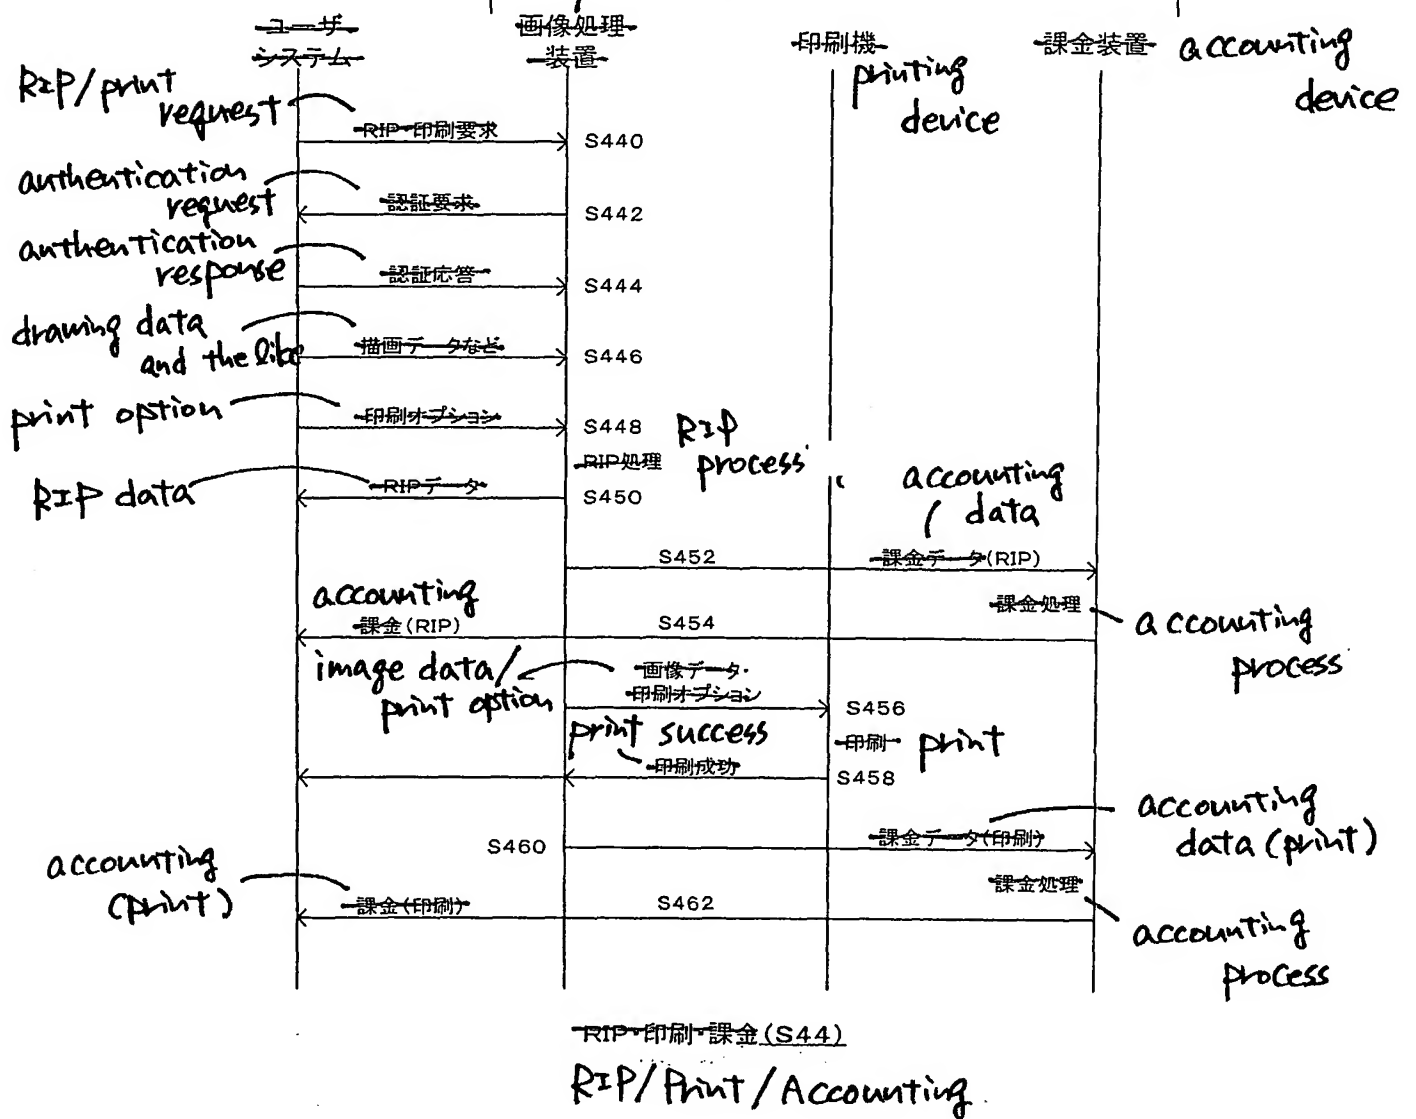 ユーザ
システム
画像処理
装置
印刷機
課金装置
accounting
device
printing
device
RIP/print
request
RIP・印刷要求
S440
authentication
request
認証要求
S442
authentication
response
認証応答
S444
drawing data
and the like
描画データなど
S446
print option
印刷オプション
S448
RIP処理
RIP
process
RIP data
RIPデータ
S450
accounting
data
S452
課金データ(RIP)
課金処理
accounting
process
accounting
課金(RIP)
S454
image data/
print option
画像データ・
印刷オプション
S456
印刷
print
print success
印刷成功
S458
S460
課金データ(印刷)
accounting
data (print)
課金処理
accounting
process
accounting
(print)
課金(印刷)
S462
RIP・印刷・課金(S44)
RIP/Print/Accounting